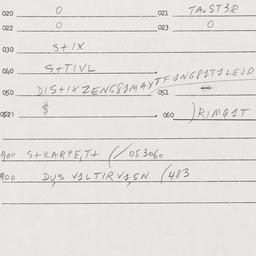 020 0 021 TA.ST3R
022 0 023 0
030 S+IX
040 S+TIVL
050 DIS+IXZENG81MAYTF1NG81T1LEID 051 -
052) $ 060 )RIMQ1T
900 S+KARPE,T+ (/053060
900 DU,S V1LTIRV1,SN (483